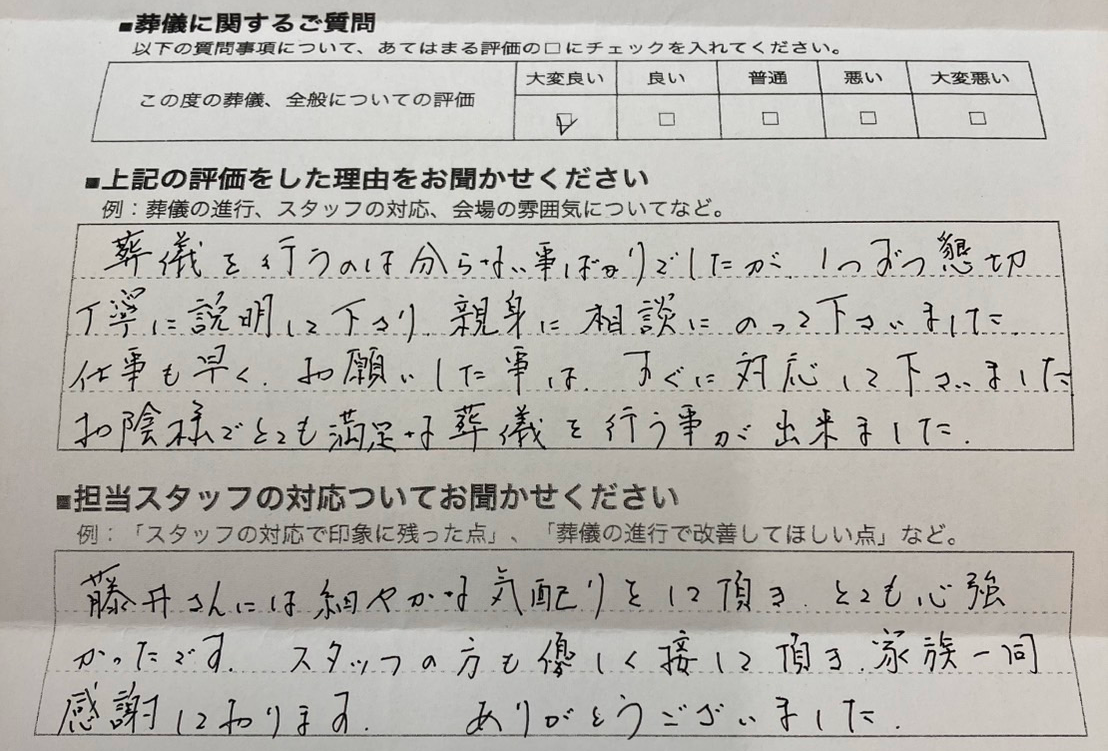 ■葬儀に関するご質問
以下の質問事項について、あてはまる評価の□にチェックを入れてください。
大変良い 良い 普通 悪い 大変悪い
この度の葬儀、全般についての評価 ☑ □ □ □ □
■上記の評価をした理由をお聞かせください
例：葬儀の進行、スタッフの対応、会場の雰囲気についてなど。
葬儀を行うのは分らない事ばかりでしたが、1つずつ懇切
丁寧に説明して下さり、親身に相談にのって下さいました。
仕事も早く、お願いした事は、すぐに対応して下さいました
お陰様でとても満足な葬儀を行う事が出来ました。
■担当スタッフの対応ついてお聞かせください
例：「スタッフの対応で印象に残った点」、「葬儀の進行で改善してほしい点」など。
藤井さんには細やかな気配りをして頂き、とても心強
かったです。 スタッフの方も優しく接して頂き、家族一同
感謝しております。 ありがとうございました。